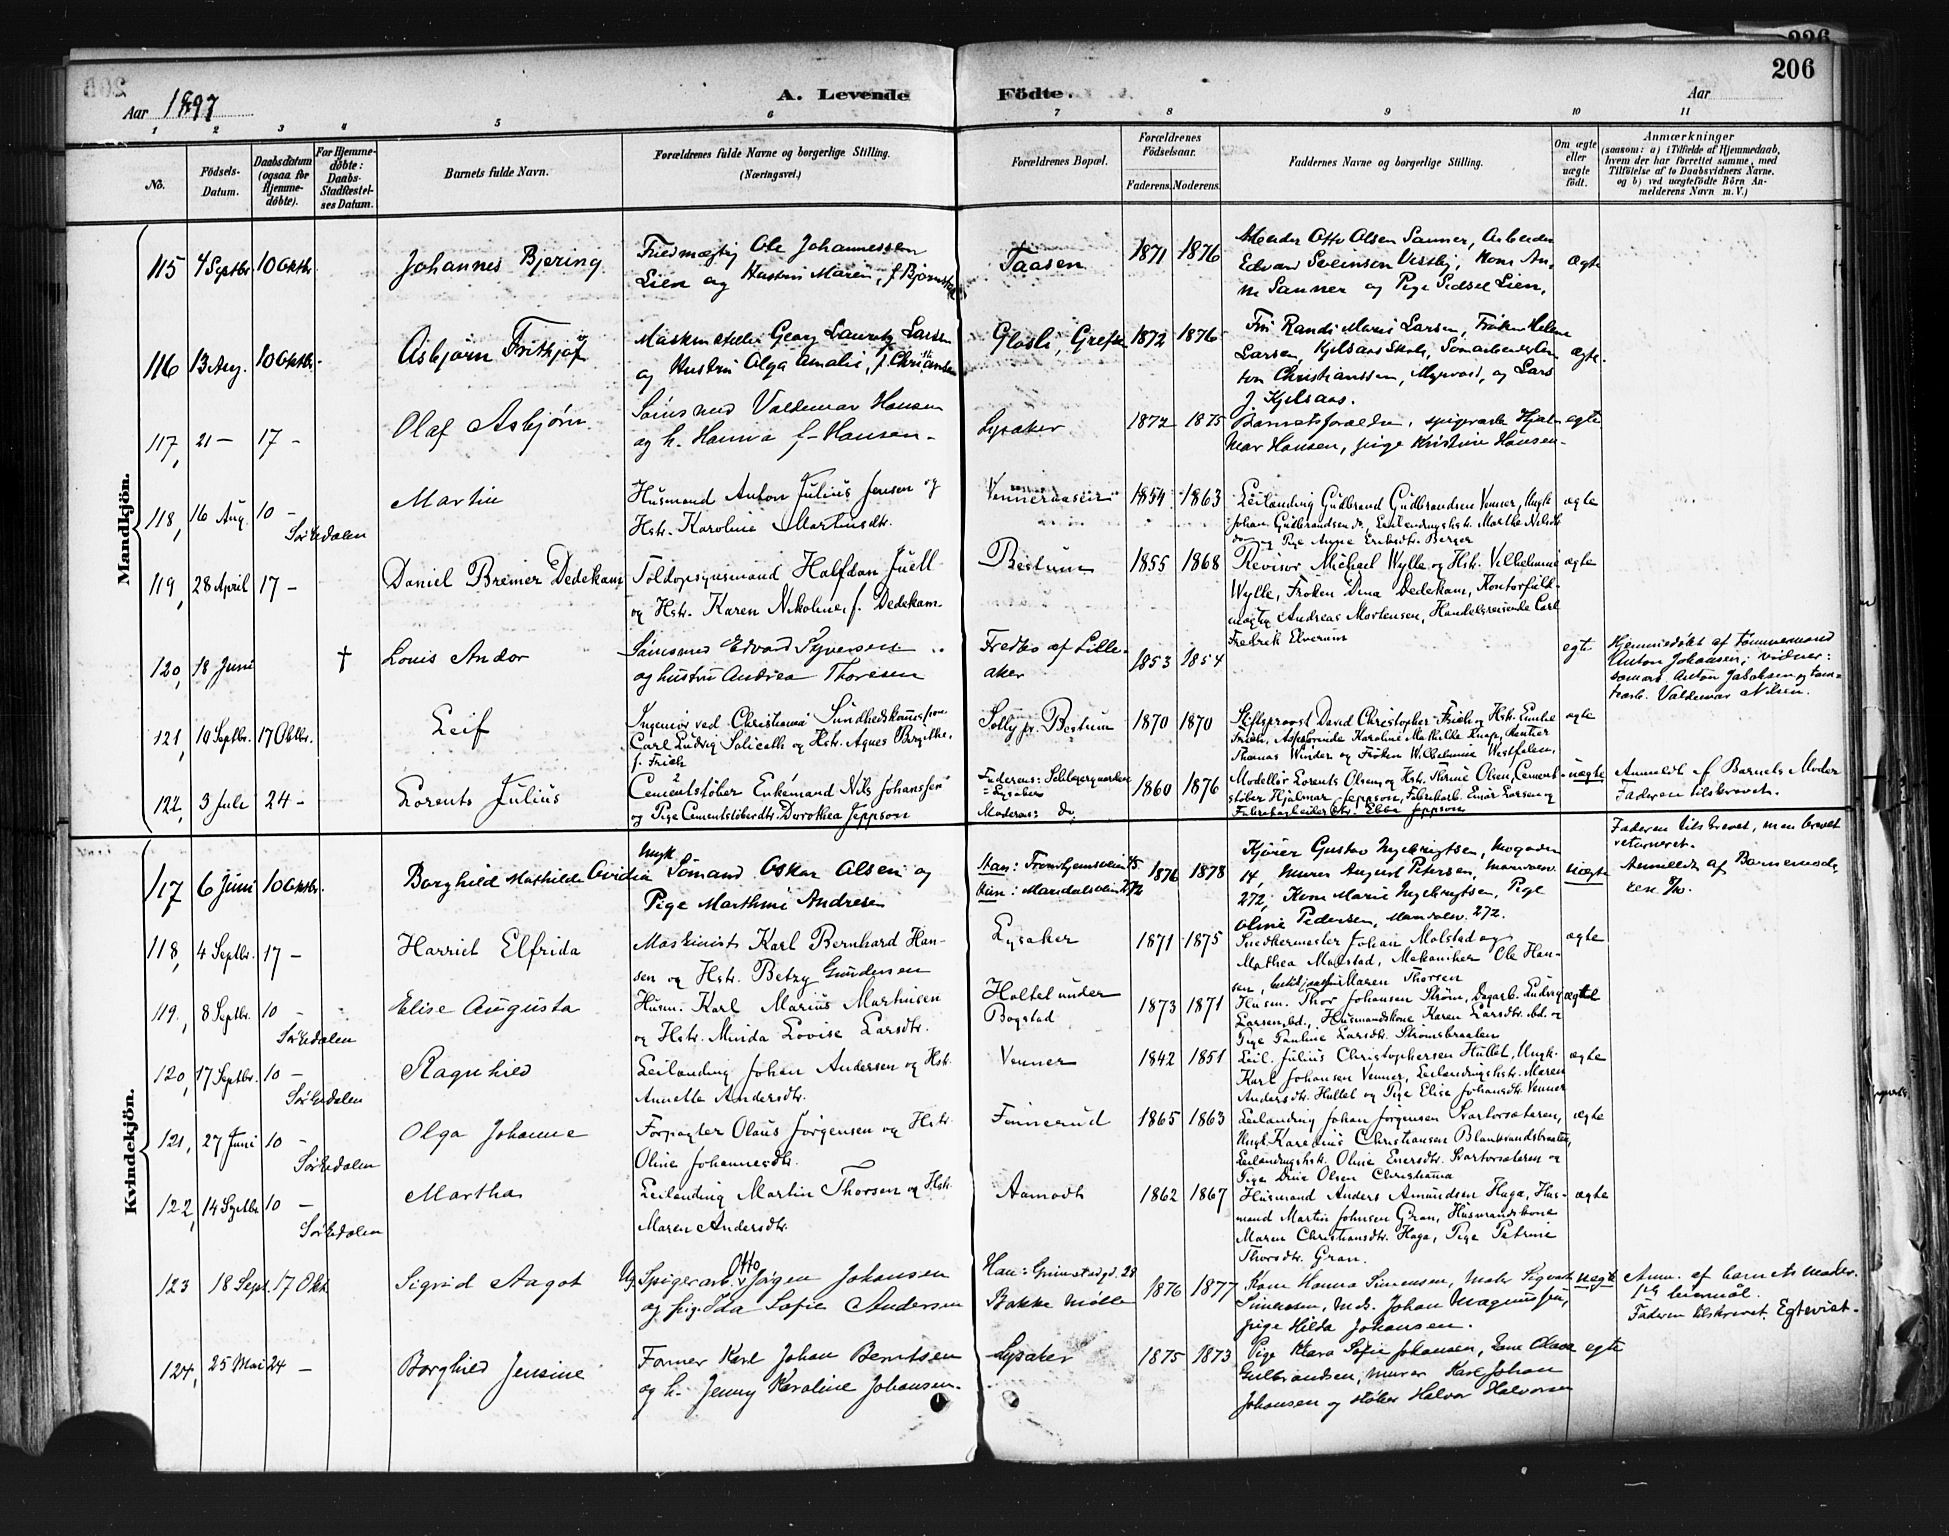 226
206
Aar 1897
A. Levende Födte.
Aar
1 2 3 4 5 6 7 8 9 10 11
No.
Födsels-Datum.
Daabsdatum (ogsaa for Hjemmedöbte).
For Hjemmedöbte: Daabs-Stadfestelses Datum.
Barnets fulde Navn.
Forældrenes fulde Navne og borgerlige Stilling. (Næringsvei.)
Forældrenes Bopæl.
Forældrenes Födselsaar.
Faderens. Moderens.
Faddernes Navne og borgerlige Stilling.
Om ægte eller uægte födt.
Anmærkninger
(saasom: a) i Tilfælde af Hjemmedaab, hvem der har forrettet samme, med Tilföielse af to Daabsvidners Navne, og b) ved uægtefödte Börn Anmelderens Navn m. V.)
Mandkjön.
115 4 Septbr. 10 Oktbr. Johannes Bjering
Ole Johannessen
Lien og Hustru Maren, f. Bjørnstad
Taasen 1871 1876
Otto Olsen Sanner, Arbeider
Edvard Svensen Vestby, Kone An-
ne Sanner og Pige Sidsel Lien,
ægte
116 13 Aug. 10 Oktbr. Asbjørn Frithjof
Georg Lauritz Larsen
og Hustru Olga Amalie, f. Christiansen
Glosli, Grefsen 1872 1876
Frk. Randi Marie Larsen, Frøken Helene
Larsen, Kjelsaas Skole,
Christianssen, Myrvold, og Lars
J. Kjelsaas.
ægte.
117, 21 — 17 - Olaf Asbjørn
Valdemar Hansen
og h. Hanna f. Hansen -
Lysaker 1872 1875
Barnets forældre, spigerarb. Hjal-
mar Hansen, pige Kristine Hansen-
egte
118, 16 Aug. 10 - Sørkedalen
Martin
Husmand Anton Julius Jensen og
Hstr. Karoline Martinsdtr.
Venneraasen 1854 1863
Leilænding Gudbrand Gudbrandsen Venner, Ungk.
Johan Gudbrandsen do, Leilændingshstr. Marthe Nilsdtr.
do og Pige Anne Eriksdtr. Berger
ægte
119, 28 April 17 - Daniel Bremer Dedekam
Toldopsynsmand Halfdan Juell
og Hstr. Karen Nikoline f. Dedekam.
Bestum 1855 1868
Revisor Michael Wylle og Hstr. Vilhelmine
Wylle, Frøken Dina Dedekam, Kontorfuld-
mægtig Andreas Mortensen, Handelsreisende Carl
Fredrik Elverum
ægte
120, 18 Juni † Louis Andor
Edvard Syversen
og hustru Andrea Thoresen
Fredbo af Lille-
aker 1853 1854
egte
Hjemmedøbt af tømmermand
Anton Johansen; vidner:
Anton Jakobsen og
Valdemar Nilsen.
121, 19 Septbr. 17 Oktbr. Leif
Ingeniør ved Christiania Sundhedskommission
Carl Ludvig Solicath og Hstr. Agnes Birgithe,
f. Frich
Solly pr. Bestum 1870 1870
Stiftsprovst David Christopher Frich og Hstr. Emilie
Frich, Karoline Mathilde Knap, Rentier
Thomas Winder og Frøken Wilhelmine Westfalen,
ægte
122, 3 Juli 24 - Lorents Julius
Cementstøber Enkemand Nils Johanssen
og Pige Cementstøberdtr. Dorothea Jeppson
Faderens: Lysaker
Moderens: do. 1860 1876
Modellør Lorents Olsen, og Hstr. Thrine Olsen, Cement-
støber Hjalmar Jeppson, Fabrikarb. Einar Larsen og
Ebba Jeppson
uægte
Anmeldt af Barnets Moder
Faderen tilskrevet.
Kvindekjön.
117 6 Juni 10 Oktbr. Borghild Mathilde Ovidia
Ungk. Sømand Oskar Olsen og
Pige Marthine Andresen
Han: Trondhjemsveien 45
Hun: Maridalsveien 272
1876 1878
Kjører Gustav Ingebrigtsen, Mogaden
14, Murer August Petersen, Maridalsv.
272, Kone Marie Ingebrigtsen, Pige
Oline Pedersen, Maridalsv. 272.
uægte
Faderen tilskrevet, men brevet
returneret.
Anmeldt af Barnemode-
ren.
118, 4 Septbr. 17 — Harriet Elfrida
Maskinist Karl Bernhard Han-
sen og Hstr. Betzy Gundersen
Lysaker 1871 1875
Snedkermester Johan Molstad og
Mathea Molstad, Mekaniker Ole Han-
sen, Maren Thorsen
ægte
119, 8 Septbr. 10 - Sørkedalen
Elise Augusta
Husm. Karl Marius Martinsen
og Hstr. Minda Lovise Larsdtr.
Holtet under
Bogstad 1873 1871
Husm. Thor Johansen Strøm, Dagarb. Ludvig
Larsen, bd., Husmandskone Karen Larsdtr. bd. og
Pige Pauline Larsdtr. Strømsbraaten
ægte
120, 17 Septbr. 10 - Sørkedalen
Ragnhild
Leilænding Johan Andersen og Hstr.
Annette Andersdtr.
Venner 1842 1851
Leil. Julius Christophersen Hullet, Ungk.
Karl Johansen Venner, Leilændingshstr. Maren
Andersdtr. Hullet og Pige Elise Johansdtr. Venner
ægte
121, 27 Juni 10 - Sørkedalen
Olga Johanne
Forpagter Olaus Jørgensen og Hstr.
Oline Johannesdtr.
Finnerud 1865 1863
Leilænding Johan Jørgensen Svartorsæteren,
Ungk. Karenius Christiansen Blanksandsbraaten,
Leilændingshstr. Oline Enersdtr. Svartorsæteren og
Pige Olsen Christiania
ægte
122, 14 Septbr. 10 — Sørkedalen
Martha
Leilænding Martin Thorsen og Hstr.
Maren Andersdtr.
Aamodt 1862 1867
Husmand Anders Amundsen Haga, Hus-
mand Martin Johnsen Gran, Husmandskone
Maren Christiansdtr. Haga, Pige Petrine
Thorsdtr. Gran.
ægte
123 18 Sept. 17 Okt. Sigrid Aagot
Ug. Spigerarb. Otto Jørgen Johansen
og pige Ida Sofie Andersen
Han: Grimstadgd. 28
Bakke Mølle 1876 1877
Kone Hanna Simensen, Maler Sigvart
Simensen, Johan Magnussen,
pige Hilda Johansen.
uegte
Anm. af barnets moder.
1ste leiermål.
Faderen tilskrevet. Egtevist.
124, 25 Mai 24 — Borghild Jensine
Former Karl Johan Berntsen
og h. Jenny Karoline Johansen.
Lysaker 1875 1873
Pige Klara Sofie Johansen, Olava
Gulbrandsen, murer Karl Johan
Johansen og støber Halvor Halvorsen
egte